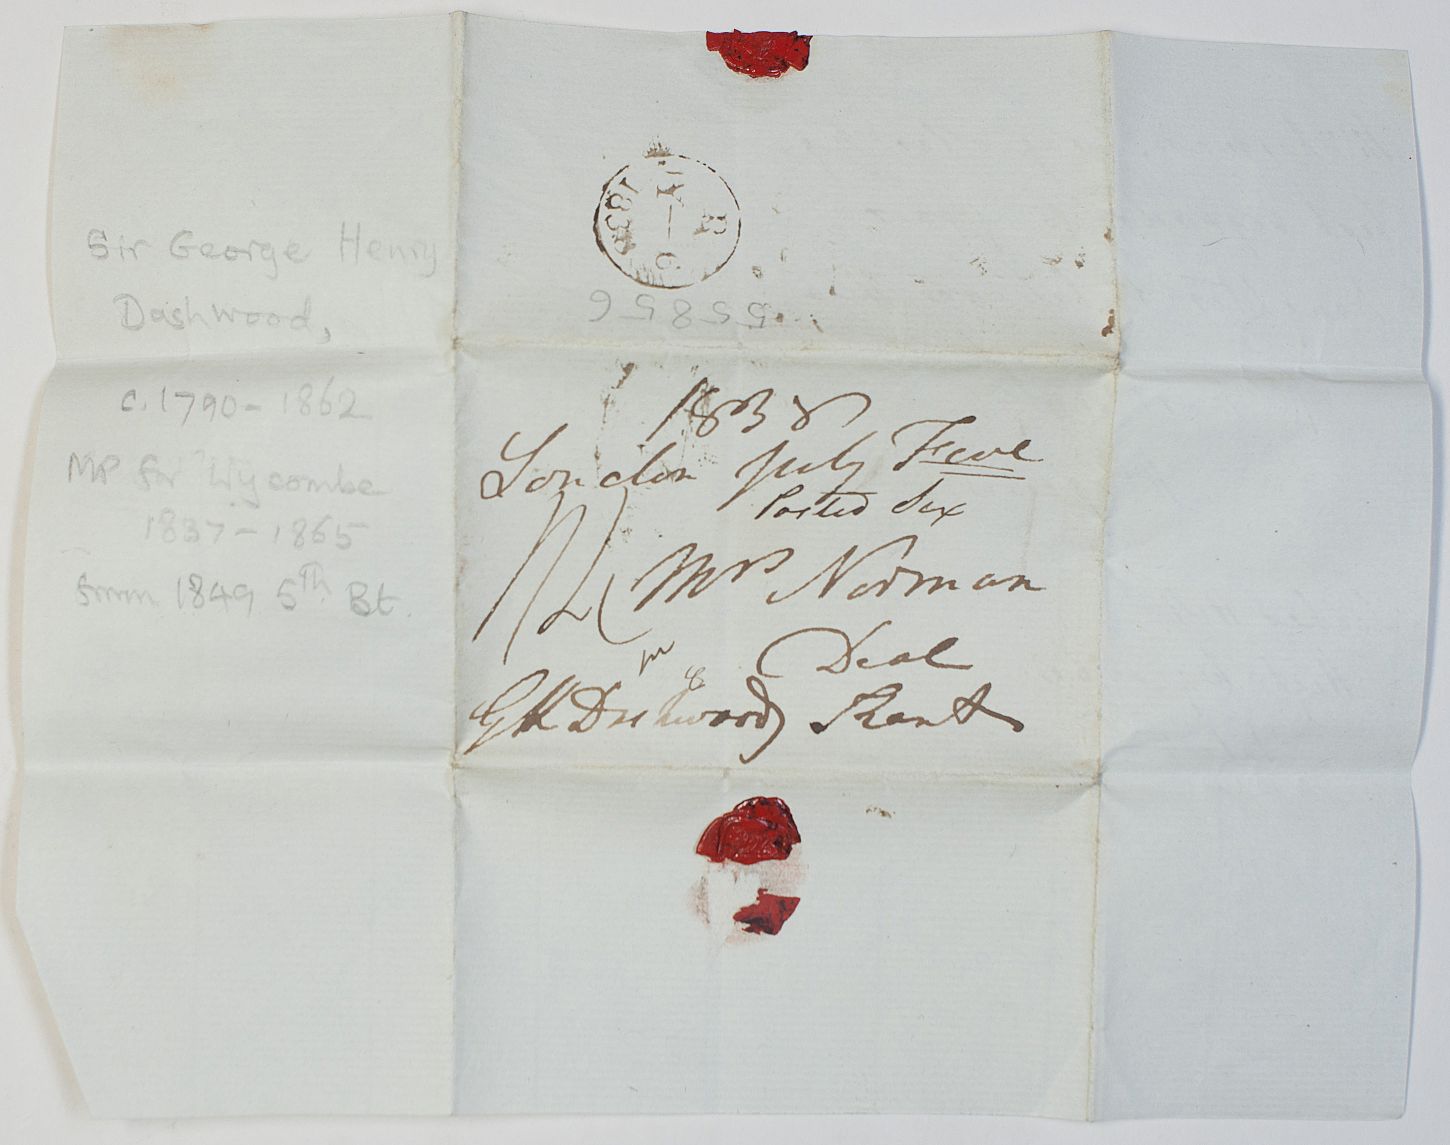 Sir George Henry
Dashwood,
c. 1790 - 1862
MP for Wycombe
1837 - 1865
from 1849 5th Bt.
1838
55856
1838
London July Five
Posted Six
Mrs Norman
Deal
Kent
GHDashwood